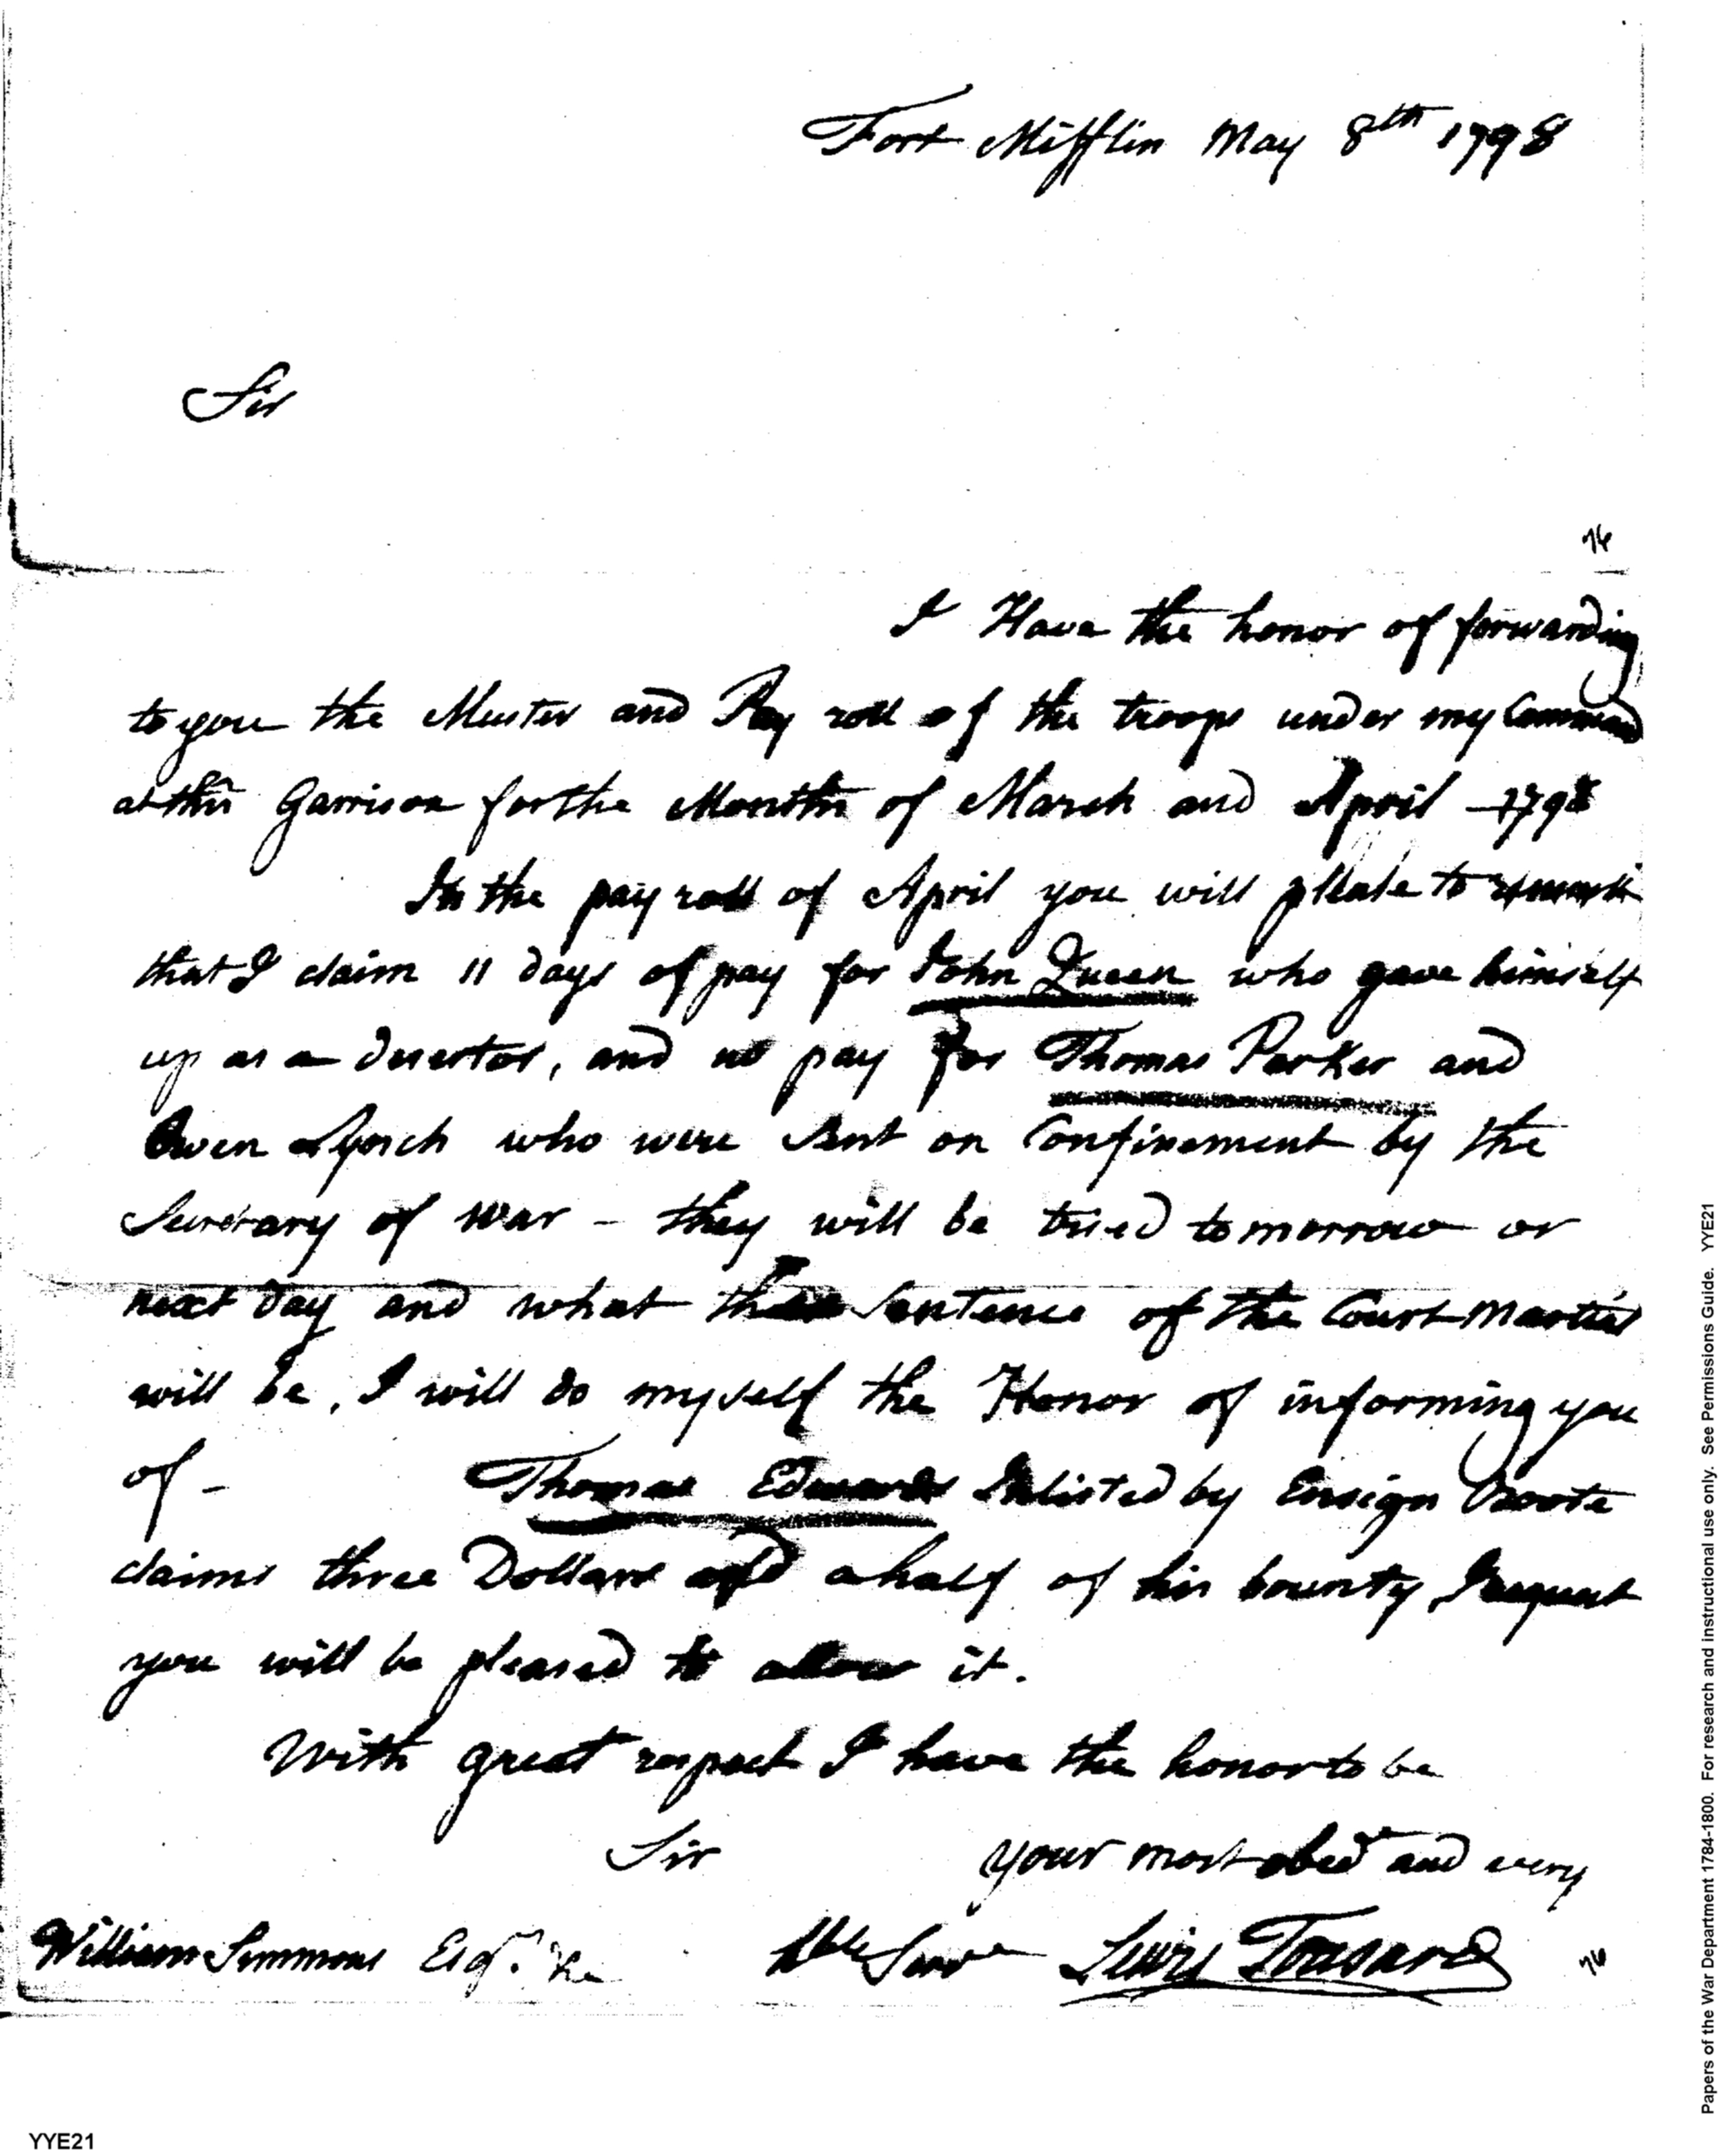 Fort Mifflin May 8th 1798
Sir
I Have the honor of forwarding
to you the Muster and Pay roll of the troops under my Command
at this Garrison for the Months of March and April 1798
In the pay roll of April you will please to remark
that I claim 11 days of pay for John Queen who gave himself
up as a desertor, and no pay for Thomas Parker and
Owen Lynch who were sent on Confinement by the
Secretary of War - they will be tried tomorrow or
next day and what the Sentence of the Court Martial
will be, I will do myself the Honor of informing you
of - Thomas Edwards Inlisted by Ensign
claims three Dollars and a half of his bounty, I request
you will be pleased to allow it.
With great respect I have the honor to be
Sir your most obed and very
William Simmons Esqr. &c hble Serv Lewis Tousard
YYE21
Papers of the War Department 1784-1800. For research and instructional use only. See Permissions Guide. YYE21